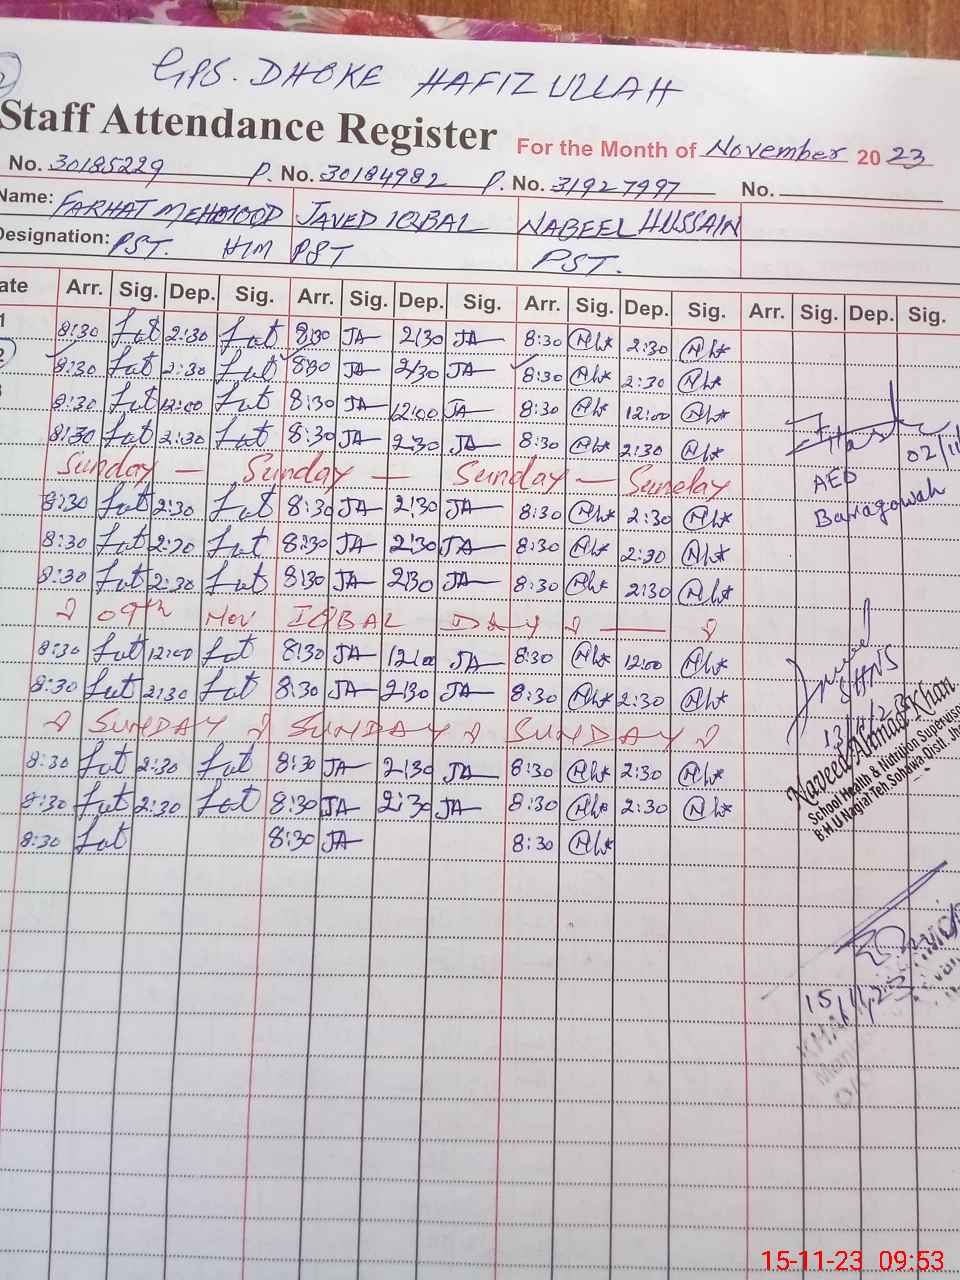 GPS. DHOKE HAFIZ ULLAH
Staff Attendance Register For the Month of November 2023
No. 30185229 P. No. 30184982 P. No. 31927997 No.
Name: FARHAT MEHMOOD JAVED IQBAL NABEEL HUSSAIN
Designation: PST. H/M PST PST.
ate Arr. Sig. Dep. Sig. Arr. Sig. Dep. Sig. Arr. Sig. Dep. Sig. Arr. Sig. Dep. Sig.
1 8:30 2:30 8:30 JA 2:30 JA 8:30 2:30
2 8:30 2:30 8:30 JA 2:30 JA 8:30 2:30
8:30 12:00 8:30 JA 12:00 JA 8:30 12:00
8:30 2:30 8:30 JA 2:30 JA 8:30 2:30
Sunday — Sunday — Sunday — Sunday
02/11
AEO
Baragowah
8:30 2:30 8:30 JA 2:30 JA 8:30 2:30
8:30 2:30 8:30 JA 2:30 JA 8:30 2:30
8:30 2:30 8:30 JA 2:30 JA 8:30 2:30
09th Nov IQBAL DAY —
8:30 12:00 8:30 JA 12:00 JA 8:30 12:00
8:30 2:30 8:30 JA 2:30 JA 8:30 2:30
SUNDAY SUNDAY SUNDAY
SHNS
Naveed Ahmad Khan
School Health & Nutrition Supervisor
B.H.U Nagial Teh Sohawa Distt. Jh
8:30 2:30 8:30 JA 2:30 JA 8:30 2:30
8:30 2:30 8:30 JA 2:30 JA 8:30 2:30
8:30 8:30 JA 8:30
15/11/23
15-11-23 09:53